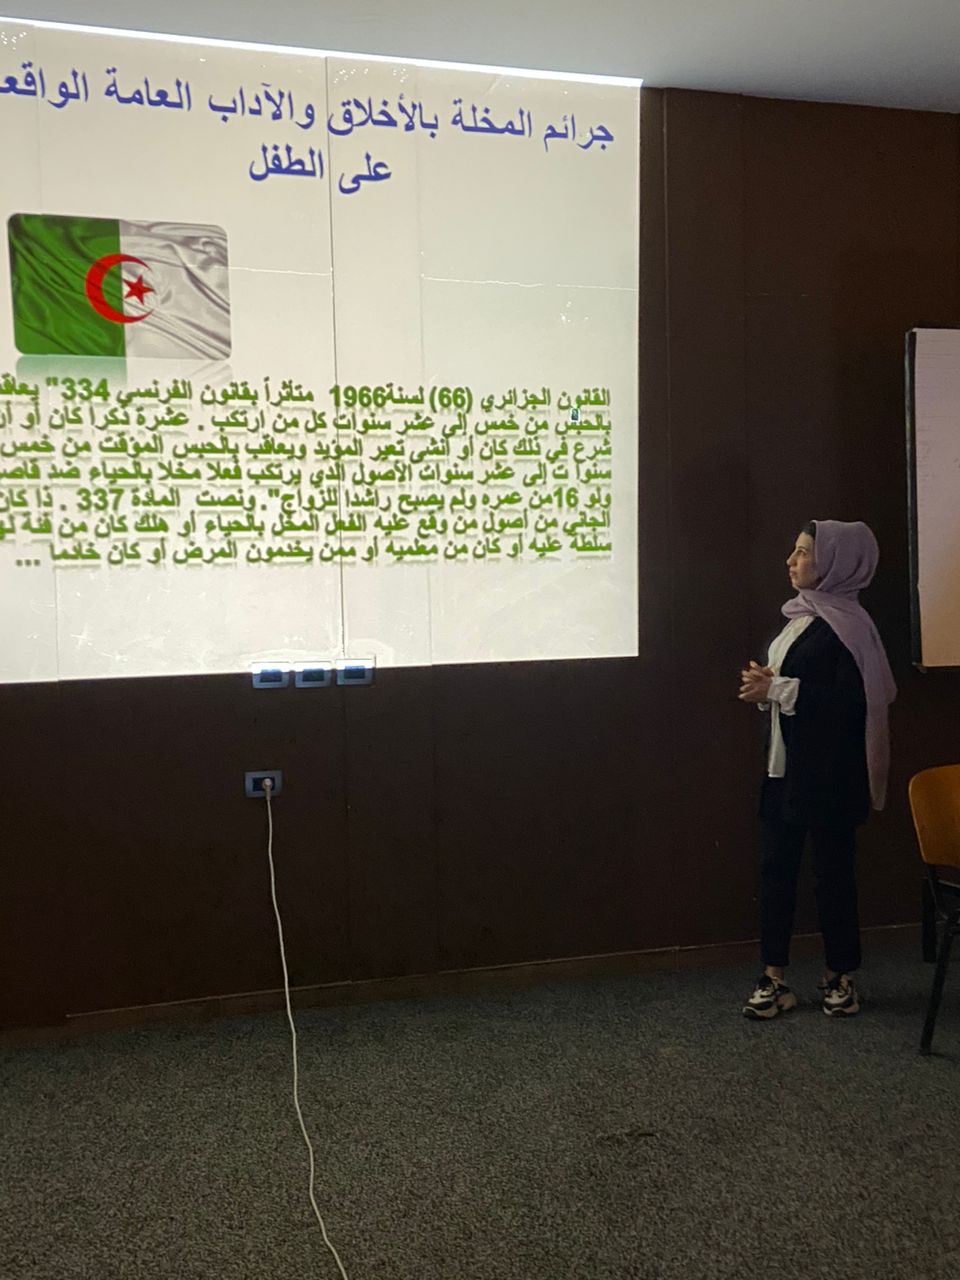 جرائم المخلة بالأخلاق والآداب العامة الواقع
على الطفل
القانون الجزائري (66) لسنة1966 متأثراً بقانون الفرنسي 334" يعاقب
بالحبس من خمس إلى عشر سنوات كل من ارتكب . عشرة ذكرا كان أو أن
شرع في ذلك كان أو أنثى تعير المؤبد ويعاقب بالحبس المؤقت من خمس
سنوا ت إلى عشر سنوات الأصول الذي يرتكب فعلا مخلا بالحياء ضد قاصر
ولو 16من عمره ولم يصبح راشدا للزواج". ونصت المادة 337 . ذا كان
الجاني من أصول من وقع عليه الفعل المخل بالحياء أو هلك كان من فئة
سلطة عليه أو كان من معلميه أو ممن يخدمون المرض أو كان خادما ...